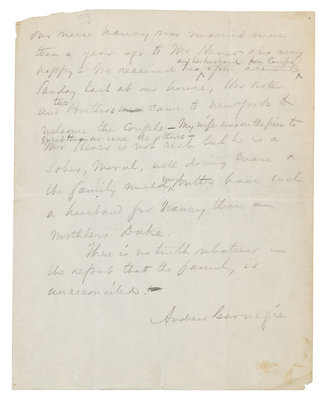 Our niece Nancy was married more
than a year ago to Mr Hever & is very
happy – We received her & her husband from Europe upon arrival
Sunday last at our house, Her sister
and two Brothers came to New York to
welcome the Couple – My wife was on the pier to
meet them as were the others –
Mr Hever is not rich but he is a
sober, moral, well doing man &
the family would much rather have such
a husband for Nancy than a
worthless Duke.
There is no truth whatever in
the report that the family is
unreconciled.
Andrew Carnegie